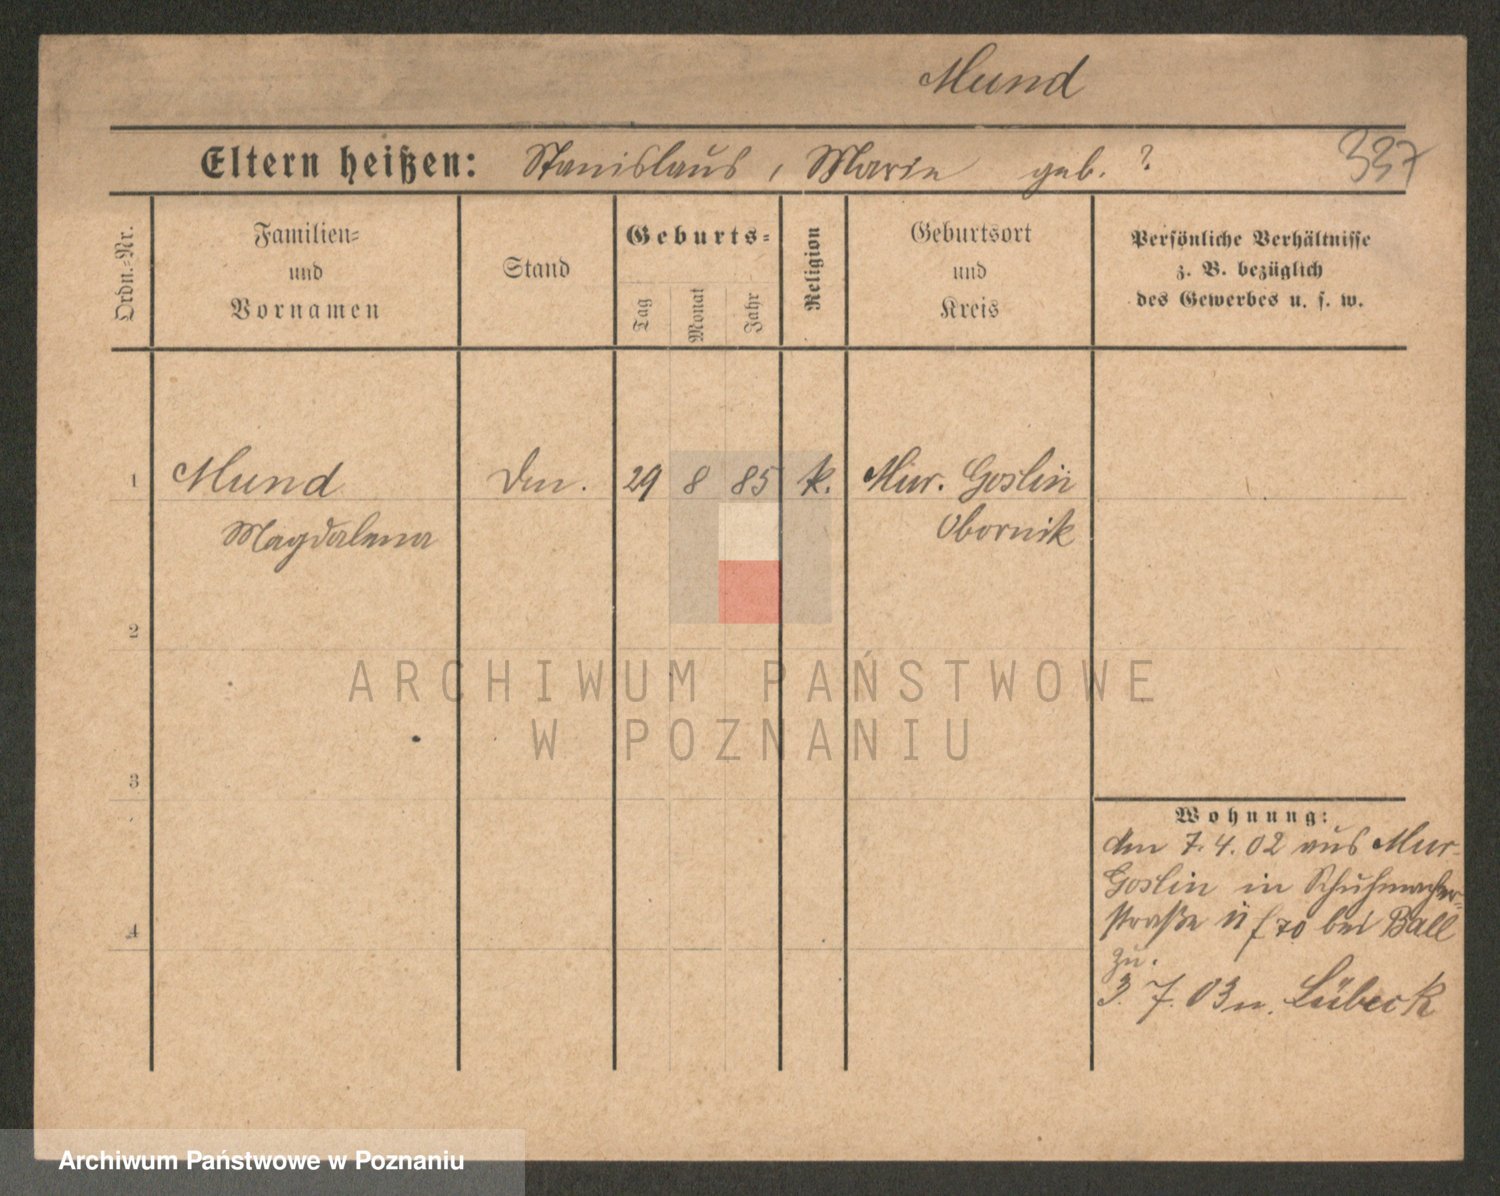 Mund
Eltern heißen: Stanislaus, Marie geb. ?
337
Ordn.-Nr.
Familien-
und
Vornamen
Stand
Geburts-
Tag
Monat
Jahr
Religion
Geburtsort
und
Kreis
Persönliche Verhältnisse
z. B. bezüglich
des Gewerbes u. s. w.
1
Mund
Magdalena
29 8 85 k.
Mur. Goslin
Obornik
2
3
4
Wohnung:
den 7.4.02 aus Mur-
Goslin in Schuhmacher-
straße 70 bei Ball
zu.
3. 7. 03 n. Lübeck
ARCHIWUM PAŃSTWOWE
W POZNANIU
Archiwum Państwowe w Poznaniu